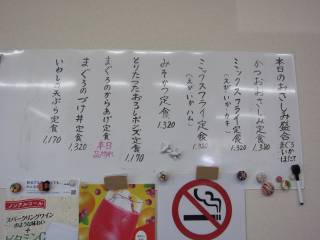 本日のおさしみ盛合
まぐろ
いか
はたて
かつおおさしみ定食
1,380
ミックスフライ定食
(えび・いか・かき)
1,380
ミックスフライ定食
(えび・いか・ハム)
1,320
みそかつ定食
1,320
とりたつたおろしポン定食
1,170
まぐろのからあげ定食
本日
まぐろのづけ丼定食
1,320
いわしの天ぷら定食
1,170
ノンアルコール
スパークリングワイン
のような味わい
+
ビタミンC